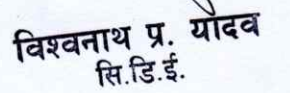 विश्वनाथ प्र. यादव
सि.डि.ई.